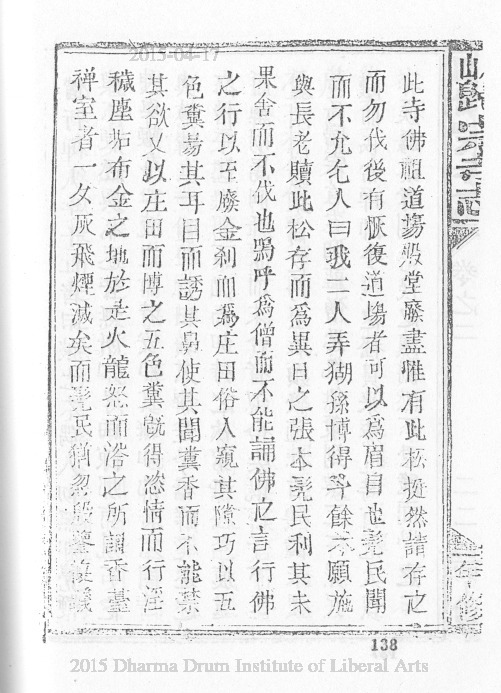 此寺佛祖道塲殿堂廢盡惟有此松挺然請存之
而勿伐後有恢復道塲者可以爲眉目也髡民聞
而不允乞人曰我二人弄猢猻博得 餘 願施
與長老贖此松存而爲異日之張本髡民利其未
果舍而不伐也嗚呼爲僧而不能誦佛之言行佛
之行以至廢金刹而爲庄田俗人窺其隙巧以五
色糞易其耳目而誘其鼻使其聞糞香而不能禁
其欲又以庄田而博之五色糞旣得恣情而行淫
穢塵坫布金之地於是火龍怒而浴之所謂香臺
禅室者一夕灰飛煙滅矣而髡民猶忽殷鑒復
年修
138
2015-04-17
2015 Dharma Drum Institute of Liberal Arts